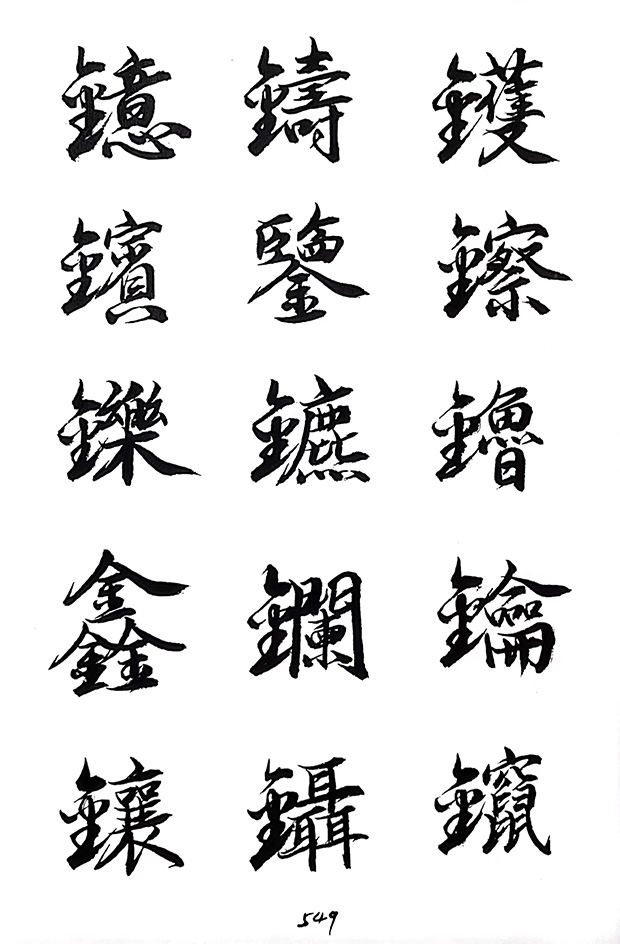 鐿 鑄 鑊
鑌 鑒 鑔
鑠 鑣 鑥
鑫 鑭 鑰
鑲 鑷 鑹
549